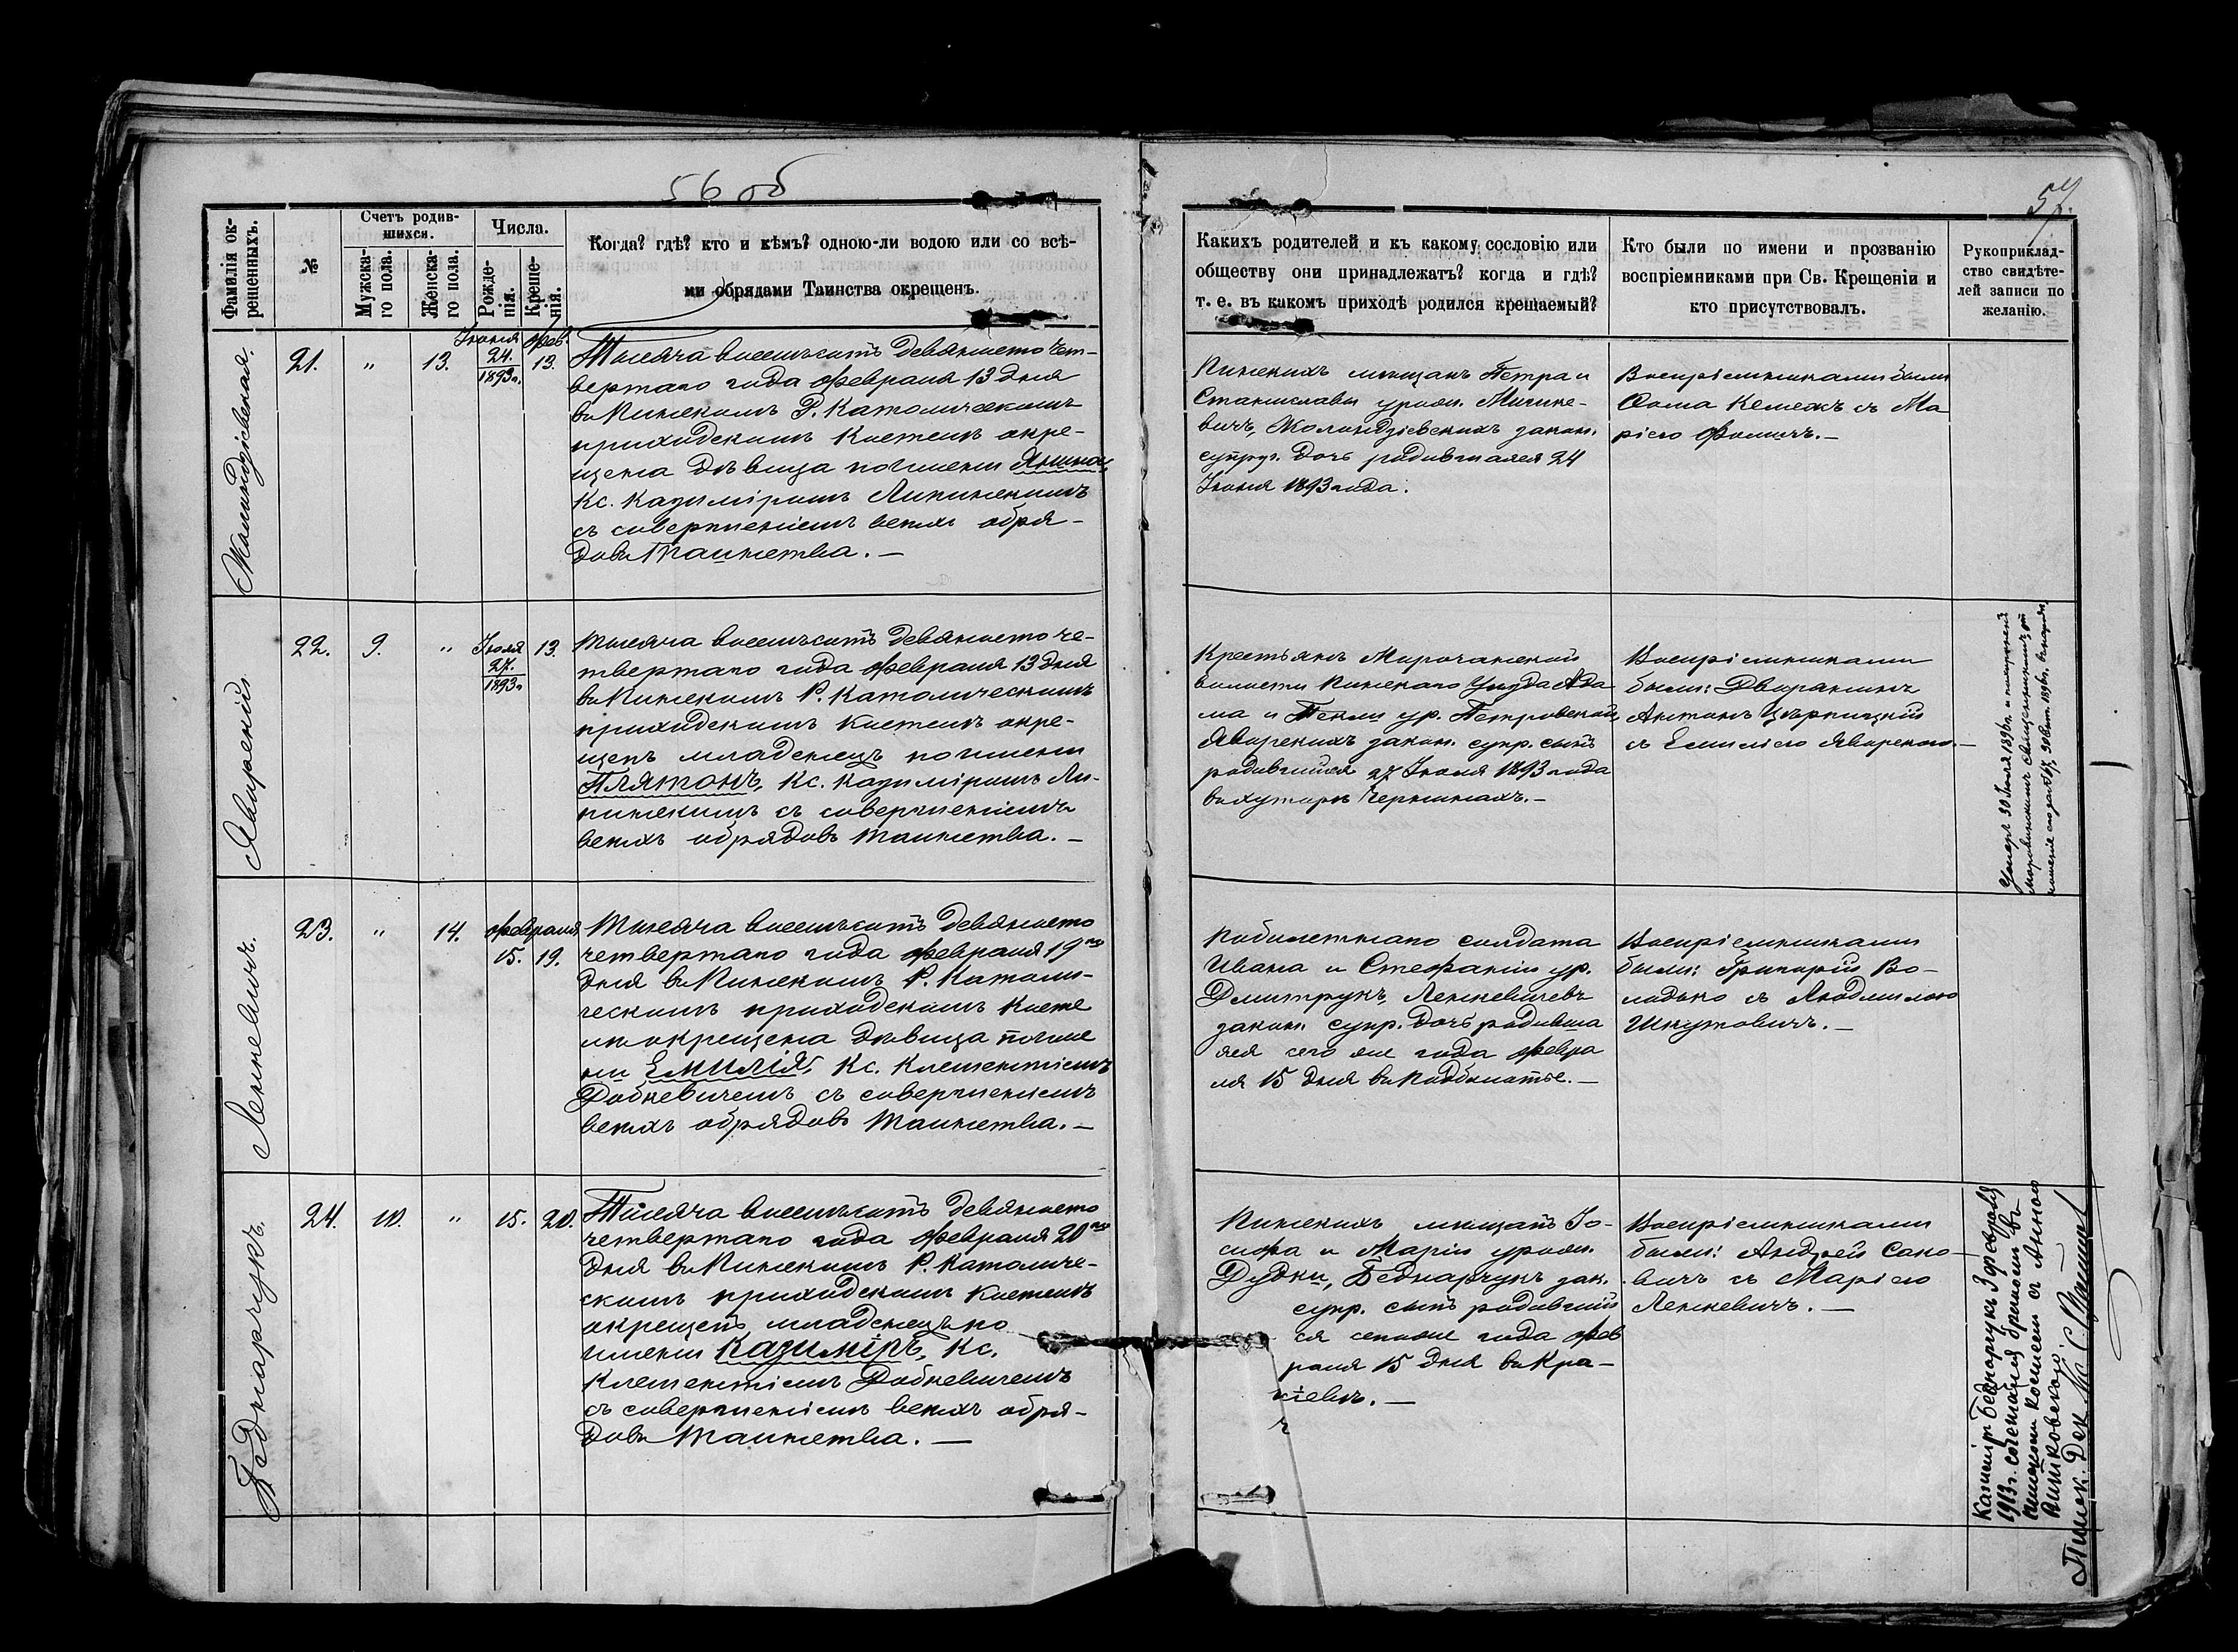 56 об
57.
Фамилія ок-
рещенныхъ.
№
Счетъ родив-
шихся.
Мужска-
го пола.
Женска-
го пола.
Числа.
Рожде-
нія.
Креще-
нія.
Когда? гдѣ? кто и кѣмъ? одною-ли водою или со всѣ-
ми обрядами Таинства окрещенъ.
Какихъ родителей и къ какому сословію или
обществу они принадлежатъ? когда и гдѣ?
т. е. въ какомъ приходѣ родился крещаемый?
Кто были по имени и прозванію
воспріемниками при Св. Крещеніи и
кто присутствовалъ.
Рукоприклад-
ство свидѣте-
лей записи по
желанію.
21.
"
13.
Іюня
24.
1893 г.
Фев.
13.
Тысяча восемьсотъ девяносто чет-
вертаго года Февраля 13 дня
въ Пинскомъ Р. Католическомъ
приходскомъ костелѣ окре-
щена дѣвица по имени Янина,
Кс. Казиміромъ Липинскимъ
съ совершеніемъ всѣхъ обря-
довъ Таинства. —
Пинскихъ мѣщанъ Петра и
Станиславы урожд.
законн.
супруг. дочь родившаяся 24
Іюня 1893 года.
Воспріемниками были
Ѳома съ Ма
ріею
Яворскій
22.
9.
"
Іюля
27.
1893 г.
13.
Тысяча восемьсотъ девяносто че-
твертаго года Февраля 13 дня
въ Пинскомъ Р. Католическомъ
приходскомъ костелѣ окре-
щенъ младенецъ по имени
Плятонъ, Кс. Казиміромъ Ли-
пинскимъ съ совершеніемъ
всѣхъ обрядовъ Таинства. —
Крестьянъ Морочанской
волости Пинскаго Уѣзда Ада
ма и Теклы ур. Петровской,
Яворскихъ законн. супр. сынъ
родившійся 27 Іюля 1893 года
въ хуторѣ
Воспріемниками
были: Дворянинъ
Антонъ
съ Емиліею Яворскою. —
Умеръ 30 Іюля 1896 г. и похороненъ
священникомъ,
1896 г.
Ленкевичъ.
23.
"
14.
Февраля
15.
19.
Тысяча восемьсотъ девяносто
четвертаго года Февраля 19го
дня въ Пинскомъ Р. Католи-
ческомъ приходскомъ косте
лѣ окрещена дѣвица по име
ни Емилія, Кс. Клементіемъ
Добкевичемъ съ совершеніемъ
всѣхъ обрядовъ Таинства. —
солдата
Ивана и Стефаніи ур.
Дмитрукъ, Ленкевичевъ
законн. супр. дочь родивша
яся сего же года Февра
ля 15 дня въ
Воспріемниками
были: Григорій Во-
лодько съ Людмилою
Шкутовичъ. —
Беднарчукъ.
24.
10.
"
15.
20.
Тысяча восемьсотъ девяносто
четвертаго года Февраля 20го
дня въ Пинскомъ Р. Католиче-
скомъ приходскомъ костелѣ
окрещенъ младенецъ по
имени Казиміръ, Кс.
Клементіемъ Добкевичемъ
съ совершеніемъ всѣхъ обря-
довъ Таинства. —
Пинскихъ мѣщанъ Іо-
сифа и Маріи урожд.
Дудки, Беднарчукъ зак.
супр. сынъ родившій
ся сего же года Фев
раля 15 дня въ Кра-
Воспріемниками
были: Андрей Сако-
вичъ съ Маріею
Ленкевичъ. —
Казиміръ Беднарчукъ 3 февраля
1913 г. сочетался бракомъ въ
Пинскомъ костелѣ съ Анною
Пинск. Дек.